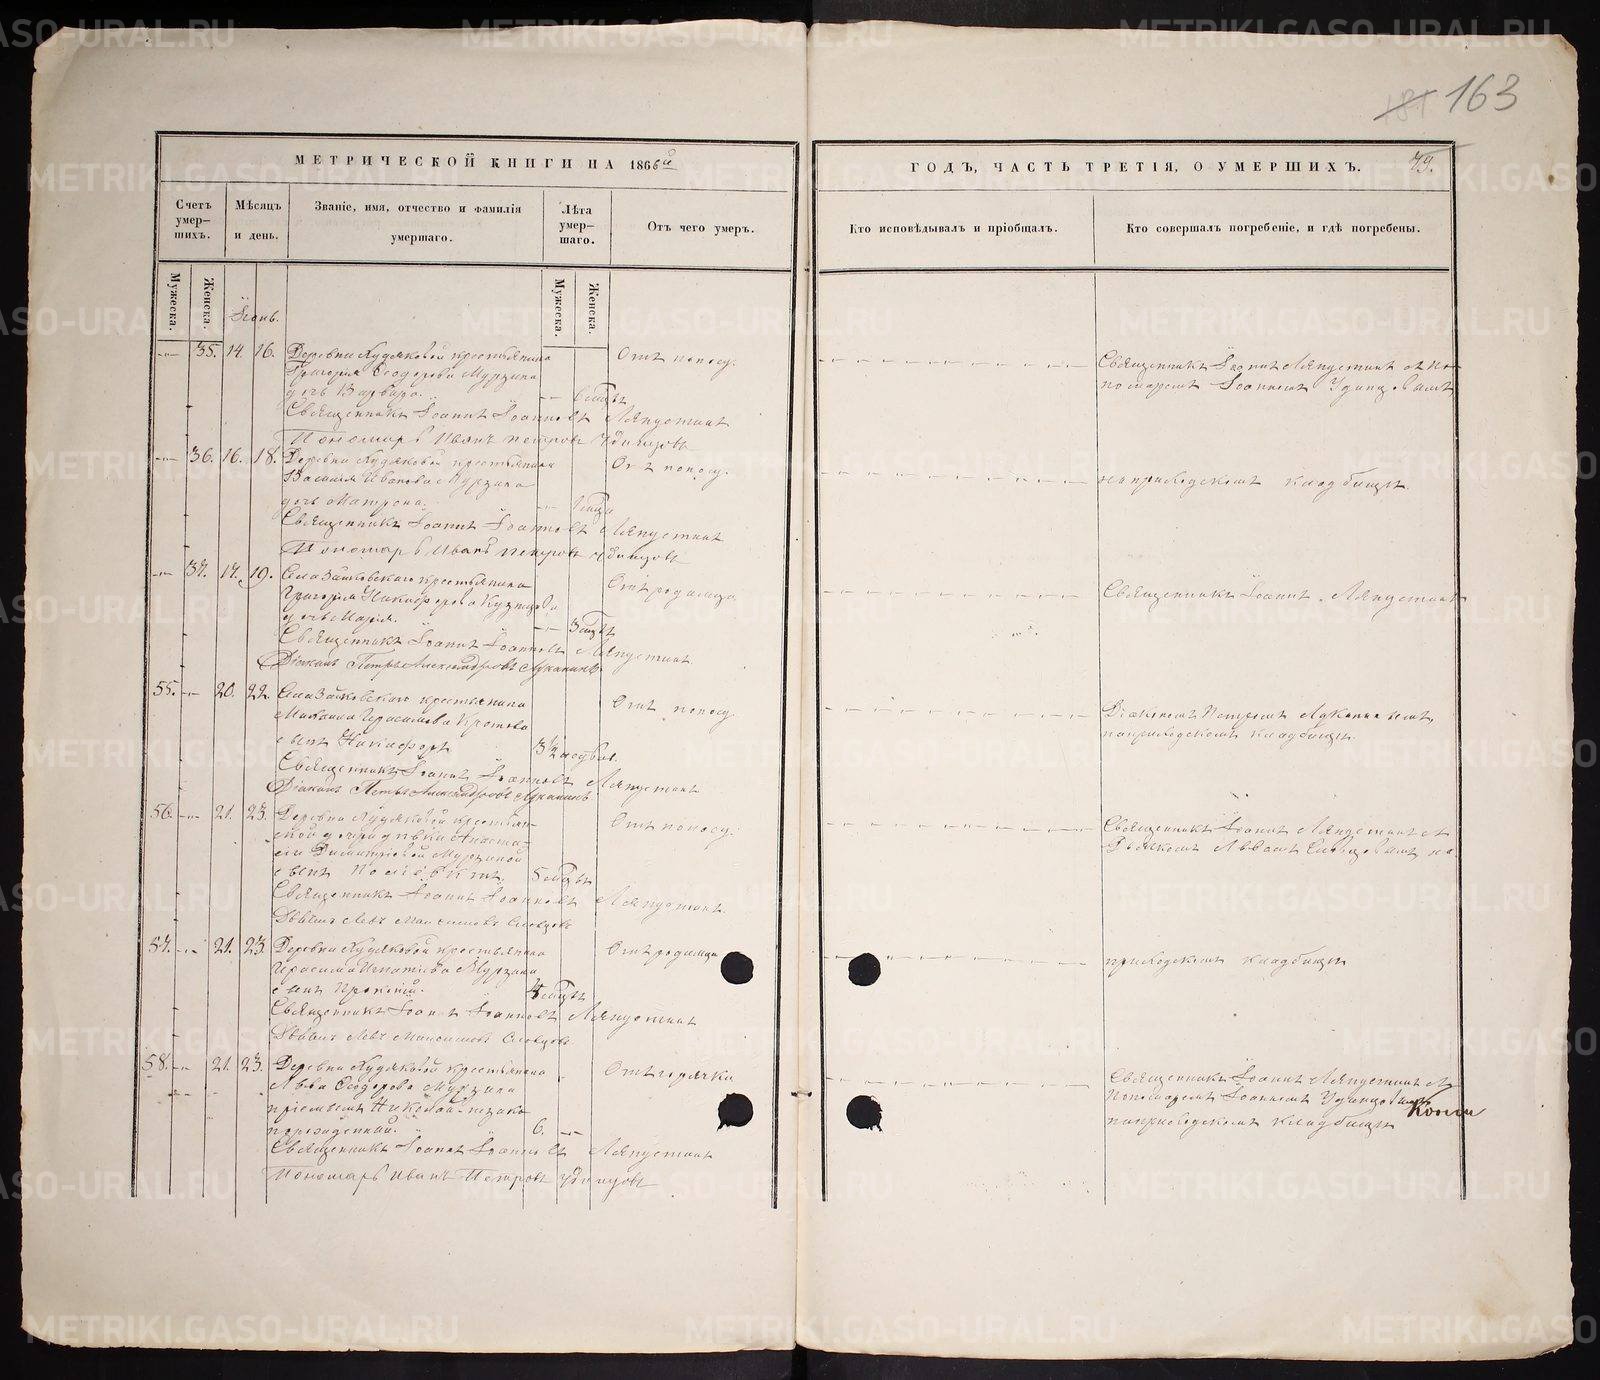 163
МЕТРИЧЕСКОЙ КНИГИ НА 1866й
ГОДЪ, ЧАСТЬ ТРЕТІЯ, О УМЕРШИХЪ. 79.
Счетъ умер-шихъ.
Мѣсяцъ и день.
Званіе, имя, отчество и фамилія умершаго.
Лѣта умер-шаго.
Отъ чего умеръ.
Кто исповѣдывалъ и пріобщалъ.
Кто совершалъ погребеніе, и гдѣ погребены.
Мужеска.
Женска.
Мужеска.
Женска.
Іюнь.
35. 14. 16. Деревни Худяковой крестьянина Отъ поносу.
Григорія Ѳеодорова Мурзина
дочь Варвара. 6 мцъ
Священникъ Іоаннъ Ляпустинъ съ по-
номаремъ Іоанномъ Удинцовымъ
Священникъ Іоаннъ Іоанновъ Ляпустинъ
Пономарь Иванъ Петровъ Удинцовъ
36. 16. 18. Деревни Худяковой крестьянина Отъ поносу.
Василія Иванова Мурзина
дочь Матрона.
на приходскомъ кладбищѣ.
Священникъ Іоаннъ Іоанновъ Ляпустинъ
Пономарь Иванъ Петровъ Удинцовъ
37. 17. 19. Села Зайковскаго крестьянина Отъ родимца
Григорія Никифорова Кузнецова
дочь Марія. 3 мцъ
Священникъ Іоаннъ Ляпустинъ
Священникъ Іоаннъ Іоанновъ Ляпустинъ
Діаконъ Петръ Александровъ Луканинъ.
55. 20. 22. Села Зайковскаго крестьянина Отъ поносу
Михаила Герасимова Кротова
сынъ Никифоръ 3½
Діакономъ Петромъ Луканинымъ,
на приходскомъ кладбищѣ.
Священникъ Іоаннъ Іоанновъ Ляпустинъ
Діаконъ Петръ Александровъ Луканинъ
56. 21. 23. Деревни Худяковой крестьян- Отъ поносу.
ской дочери дѣвки Анаста-
сіи Димитріевой Мурзиной
сынъ 5 мцъ
Священникъ Іоаннъ Ляпустинъ съ
Дьячкомъ Львомъ Словцовымъ на
Священникъ Іоаннъ Іоанновъ Ляпустинъ
Дьячекъ Левъ Максимовъ Словцовъ
57. 21. 23. Деревни Худяковой крестьянина Отъ родимца
Герасима Игнатіева Мурзина
сынъ Прокопій. мцъ
приходскомъ кладбищѣ
Священникъ Іоаннъ Іоанновъ Ляпустинъ
Дьячекъ Левъ Максимовъ Словцовъ
58. 21. 23. Деревни Худяковой крестьянина Отъ горячки
Льва Ѳеодорова Мурзина
пріемышъ Николай незако-
норожденный. 6.
Священникъ Іоаннъ Ляпустинъ съ
Пономаремъ Іоанномъ Удинцовымъ
на приходскомъ кладбищѣ
Священникъ Іоаннъ Іоанновъ Ляпустинъ
Пономарь Иванъ Петровъ Удинцовъ
METRIKI.GASO-URAL.RU